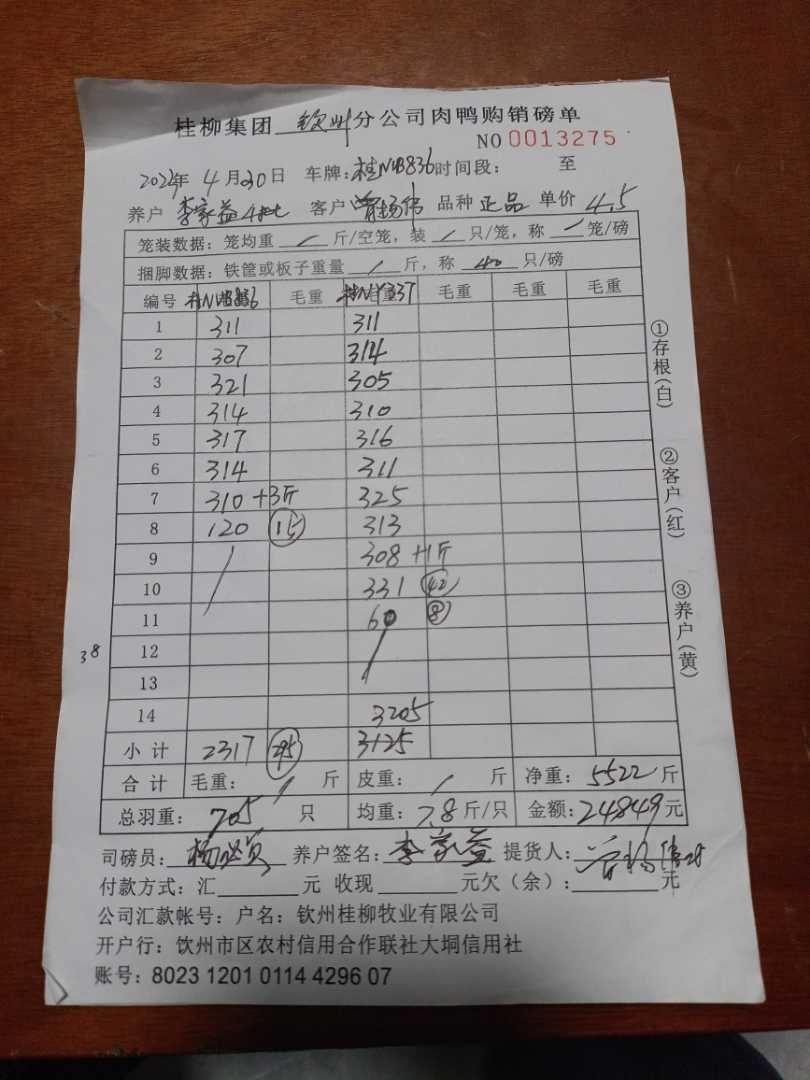 桂柳集团 钦州 分公司肉鸭购销磅单
NO 0013275
2024年 4月30日 车牌:桂NUB836 时间段: 至
养户 李家益 客户 品种 正品 单价 4.5
笼装数据:笼均重 / 斤/空笼,装 / 只/笼,称 / 笼/磅
捆脚数据:铁筐或板子重量 / 斤,称 40 只/磅
编号 毛重 毛重 毛重 毛重
1 311 311
2 307 314
3 321 305
4 314 310
5 317 316
6 314 311
7 310 +3斤 325
8 120 15 313
9 308 +1斤
10 331 42
11 60 8
38
12
13
14 3205
小 计 2317 295 3125
合 计 毛重: / 斤 皮重: / 斤 净重: 5522 斤
总羽重: 705 只 均重: 7.8 斤/只 金额: 24849 元
司磅员: 养户签名: 李家益 提货人:
付款方式:汇 元 收现 元欠(余): 元
公司汇款帐号:户名:钦州桂柳牧业有限公司
开户行:饮州市区农村信用合作联社大垌信用社
账号:8023 1201 0114 4296 07
①存根(白)
②客户(红)
③养户(黄)